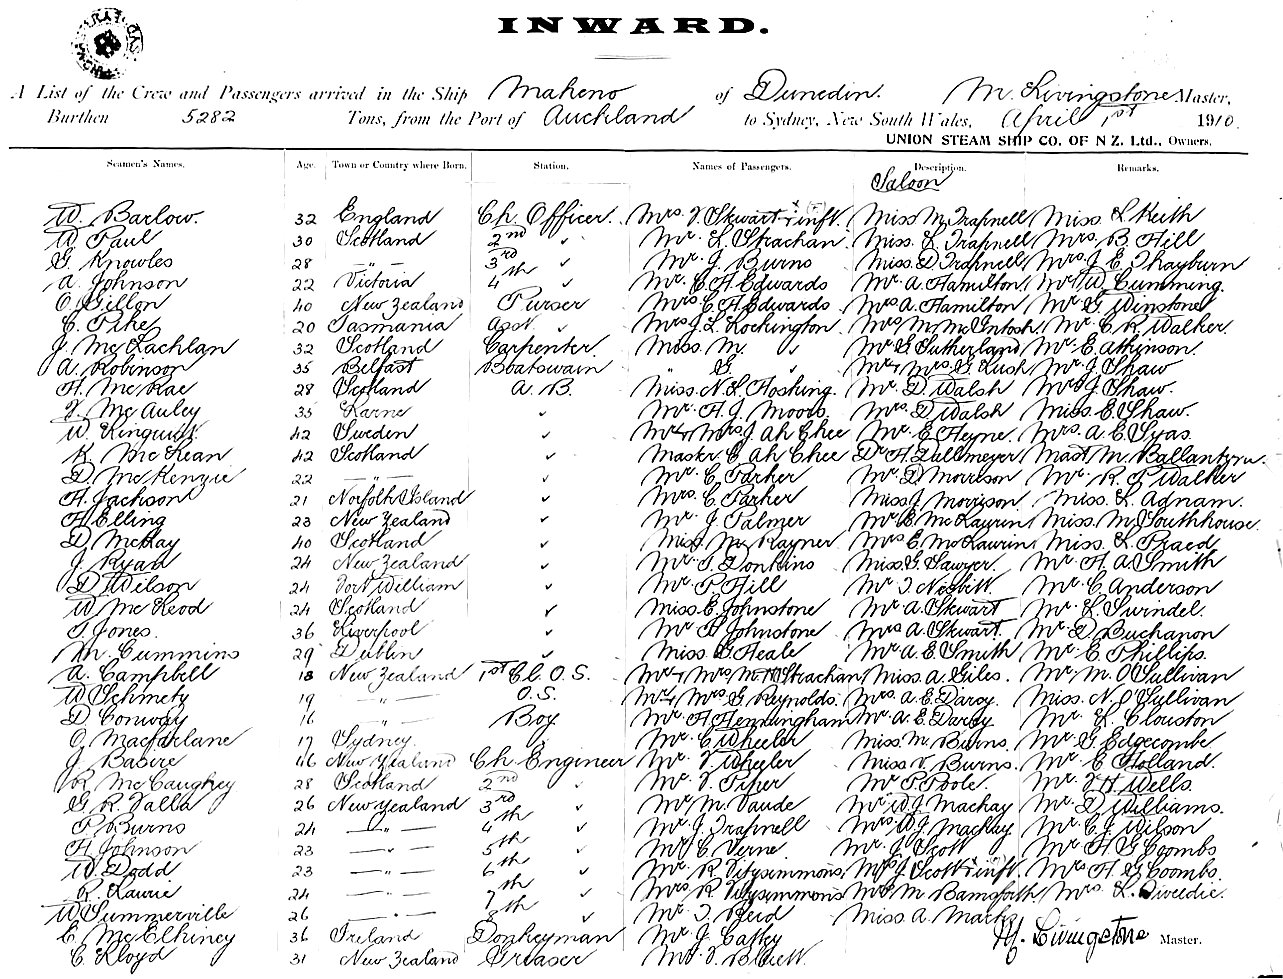 INWARD.
A List of the Crew and Passengers arrived in the Ship Makeno of Dunedin. M. Livingstone Master,
Burthen 5282 Tons, from the Port of Auckland to Sydney, New South Wales, April 1st 1910.
UNION STEAM SHIP CO. OF N Z. Ltd., Owners.
Seamen's Names. Age. Town or Country where Born. Station. Names of Passengers. Description. Remarks.
Saloon
W. Barlow. 32 England Ch. Officer. Mrs. V. Stewart + inft. Miss M. Trapnell Miss L Keith
W. Paul 30 Scotland 2nd " Mr. L. Strachan Miss. L. Trapnell Mrs. B. Hill
G. Knowles 28 — " — 3rd " Mr. J. Burns Miss. D. Trapnell Mrs. J. E. Thayburn
A. Johnson 22 Victoria 4th " Mr. C. H. Edwards Mr. A. Hamilton Mr. W. Cumming.
C. Dillon 40 New Zealand Purser Mrs. C. H. Edwards Mrs A. Hamilton Mr. G. Winstone
C. Pike 20 Tasmania Asst. " Mrs J. L. Lockington Mrs M. McIntosh Mr. C. R. Walker.
J. McLachlan 32 Scotland Carpenter. Miss. M. " Mr G. Sutherland Mr. E. Atkinson.
A. Robinson 35 Belfast Boatswain " G. " Mr & Mrs. G. Rush Mr. J. Shaw
H. McRae 28 Scotland A. B. Miss. N. L. Hosking. Mr. D. Walsh Mrs J. Shaw.
McAuley 35 Larne " Mr. H. J. Moors Mrs. D. Walsh Miss. E. Shaw.
W. 42 Sweden " Mr & Mrs. J. Ah Chee Mr. E. Heyne. Mrs. A. E. Syas.
K. McKean 42 Scotland " Master. C. Ah Chee Dr. H. Dallmeyer Mast. M. Ballantyne.
D. McKenzie 22 — " — " Mr. C. Parker Mr. D. Morrison Mr. R. P. Walker
H. Jackson 21 Norfolk Island " Mrs. C. Parker Miss. J. Morrison Miss. L. Agnam.
H. Elling 23 New Zealand " Mr. J. Palmer Mr. E. McLaurin Miss. M. Southhouse.
D. McKay 40 Scotland " Miss. M. Rayner Mrs. E. McLaurin Miss. L. Praed
J. Ryan 24 New Zealand " Mr. S. Donkins Miss. G. Sawyer. Mr. H. A. Smith
D. Wilson 24 Fort William " Mr. P. Hill Mr. J. Nesbitt. Mr. C. Anderson
W. McLeod 24 Scotland " Miss. E. Johnstone Mr. A. Stewart Mr. L. Swindel.
S. Jones. 36 Liverpool " Mr B. Johnstone Mrs A. Stewart. Mr. D. Buchanon
M. Cummins 29 Dublin " Miss. G. Heale Mr. A. E. Smith Mr. E. Phillips.
A. Campbell 18 New Zealand 1st Cl. O. S. Mr & Mrs. M. H. Strachan Miss. A. Giles. Mr. M. O'Sullivan
W. Schmety 19 — " — O. S. Mr & Mrs. G. Reynolds. Mrs. A. E. Darcy. Miss. N. O'Sullivan
D. Conway 16 — " — Boy Mr. H. Hemmingham Mr. A. E. Darcy Mr. L. Clouston
O. Macfarlane 17 Sydney. " Mr. C. Wheeler Miss. M. Burns. Mr. G. Edgecombe
J. Babire 46 New Zealand Ch. Engineer Mr. V. Wheeler Miss. V. Burns. Mr. C. Holland.
R. McCaughey 28 Scotland 2nd " Mr. V. Piper Mr. P. Poole. Mr. V. H. Wells.
G. R. Valla 26 New Zealand 3rd " Mr. M. Vaude Mr. W. J. Mackay Mr. D. Williams.
P. Burns 24 — " — 4th " Mr. J. Trapnell Mrs. W. J. Mackay Mr. C. J. Wilson
H. Johnson 23 — " — 5th " Mr. C. Verne Mr. J. Scott Mr. H. G. Coombs
W. Dodd 23 — " — 6th " Mr. R. Vitysimmons Mrs. J. Scott + inft. Mrs. H. G. Coombs.
R. Laurie 24 — " — 7th " Mrs. R. Vitysimmons Mr. M. Bamforth Mrs. L. Sivedie.
W. Summerville 26 — " — 8th " Mr. J. Reid Miss A. Marks
E. McElhiney 36 Ireland Donkeyman Mr. J. Caffey M. Livingstone Master.
C. Lloyd 31 New Zealand Greaser Mr. V. Blewett